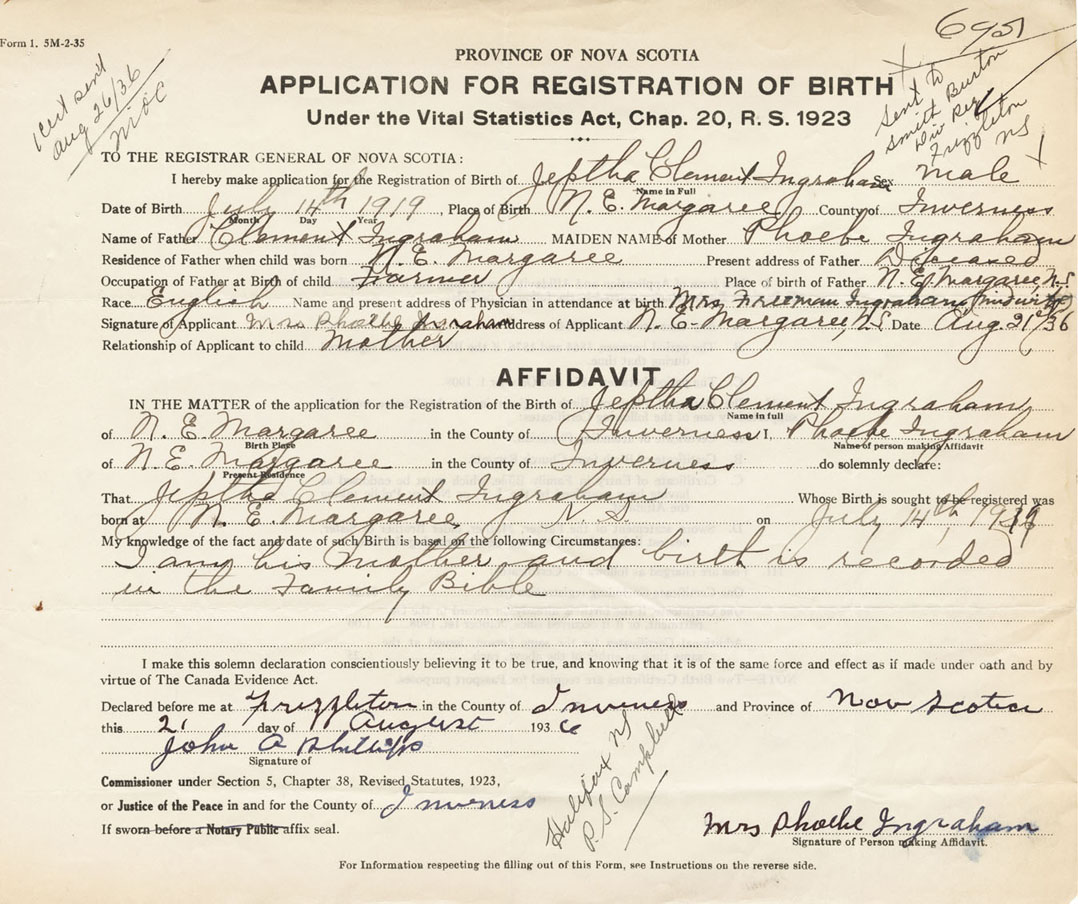 Form 1. 5M-2-35
6951
1 cert sent
Aug 26/36
PROVINCE OF NOVA SCOTIA
APPLICATION FOR REGISTRATION OF BIRTH
Under the Vital Statistics Act, Chap. 20, R. S. 1923
Sent to
Smith Burton
Div Reg
Frizzleton
NS
TO THE REGISTRAR GENERAL OF NOVA SCOTIA:
I hereby make application for the Registration of Birth of Jeptha Clement Ingraham Sex male
Name in Full
Date of Birth July 14th 1919, Place of Birth N. E. Margaree County of Inverness
Month Day Year
Name of Father Clement Ingraham MAIDEN NAME of Mother Phoebe Ingraham
Residence of Father when child was born N. E. Margaree Present address of Father Deceased
Occupation of Father at Birth of child Farmer Place of birth of Father N. E. Margaree N.S.
Race English Name and present address of Physician in attendance at birth Mrs Freeman Ingraham (midwife)
Signature of Applicant Mrs Phoebe Ingraham Address of Applicant N. E. Margaree, N.S. Date Aug. 21/36
Relationship of Applicant to child Mother
AFFIDAVIT
IN THE MATTER of the application for the Registration of the Birth of Jeptha Clement Ingraham
Name in full
of N. E. Margaree in the County of Inverness I, Phoebe Ingraham
Birth Place Name of person making Affidavit
of N. E. Margaree in the County of Inverness do solemnly declare:
Present Residence
That Jeptha Clement Ingraham Whose Birth is sought to be registered was
born at N. E. Margaree, N.S. on July 14th, 1919
My knowledge of the fact and date of such Birth is based on the following Circumstances:
I am his mother and birth is recorded
in the Family Bible
I make this solemn declaration conscientiously believing it to be true, and knowing that it is of the same force and effect as if made under oath and by
virtue of The Canada Evidence Act.
Declared before me at Frizzleton in the County of Inverness and Province of Nova Scotia
this 21 day of August 1936
John A Phillips
Signature of
Commissioner under Section 5, Chapter 38, Revised Statutes, 1923,
or Justice of the Peace in and for the County of Inverness
If sworn before a Notary Public affix seal.
Halifax NS
P.S. Campbell
Mrs Phoebe Ingraham
Signature of Person making Affidavit.
For Information respecting the filling out of this Form, see Instructions on the reverse side.